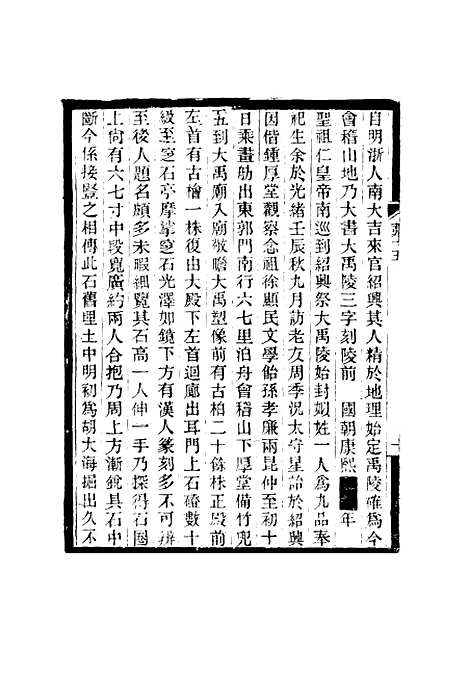 自明浙人南大吉來官紹興其人精於地理始定禹陵確為今
會稽山地乃大書大禹陵三字刻陵前　國朝康熙　　年
聖祖仁皇帝南巡到紹興祭大禹陵始封姒姓一人為九品奉
祀生余於光緒壬辰秋九月訪老友周季況太守星詒於紹興
因偕鍾厚堂觀察念祖徐顯民文學飴孫孝廉兩昆仲至初十
日乘畫舫出東郭門南行六七里泊舟會稽山下厚堂備竹兜
五到大禹廟入廟敬瞻大禹塑像前有古柏二十餘株正殿前
左首有古檜一株復由大殿下左首迴廊出耳門上石磴數十
級至窆石亭摩挲窆石光澤如鏡下方有漢人篆刻多不可辨
至後人題名頗多未暇細覽其石高一人伸一手乃探得石圓
上向有六七寸中段寬廣約兩人合抱乃周上方漸銳具石中
斷今係接豎之相傳此石舊埋土中明初為胡大海掘出久不